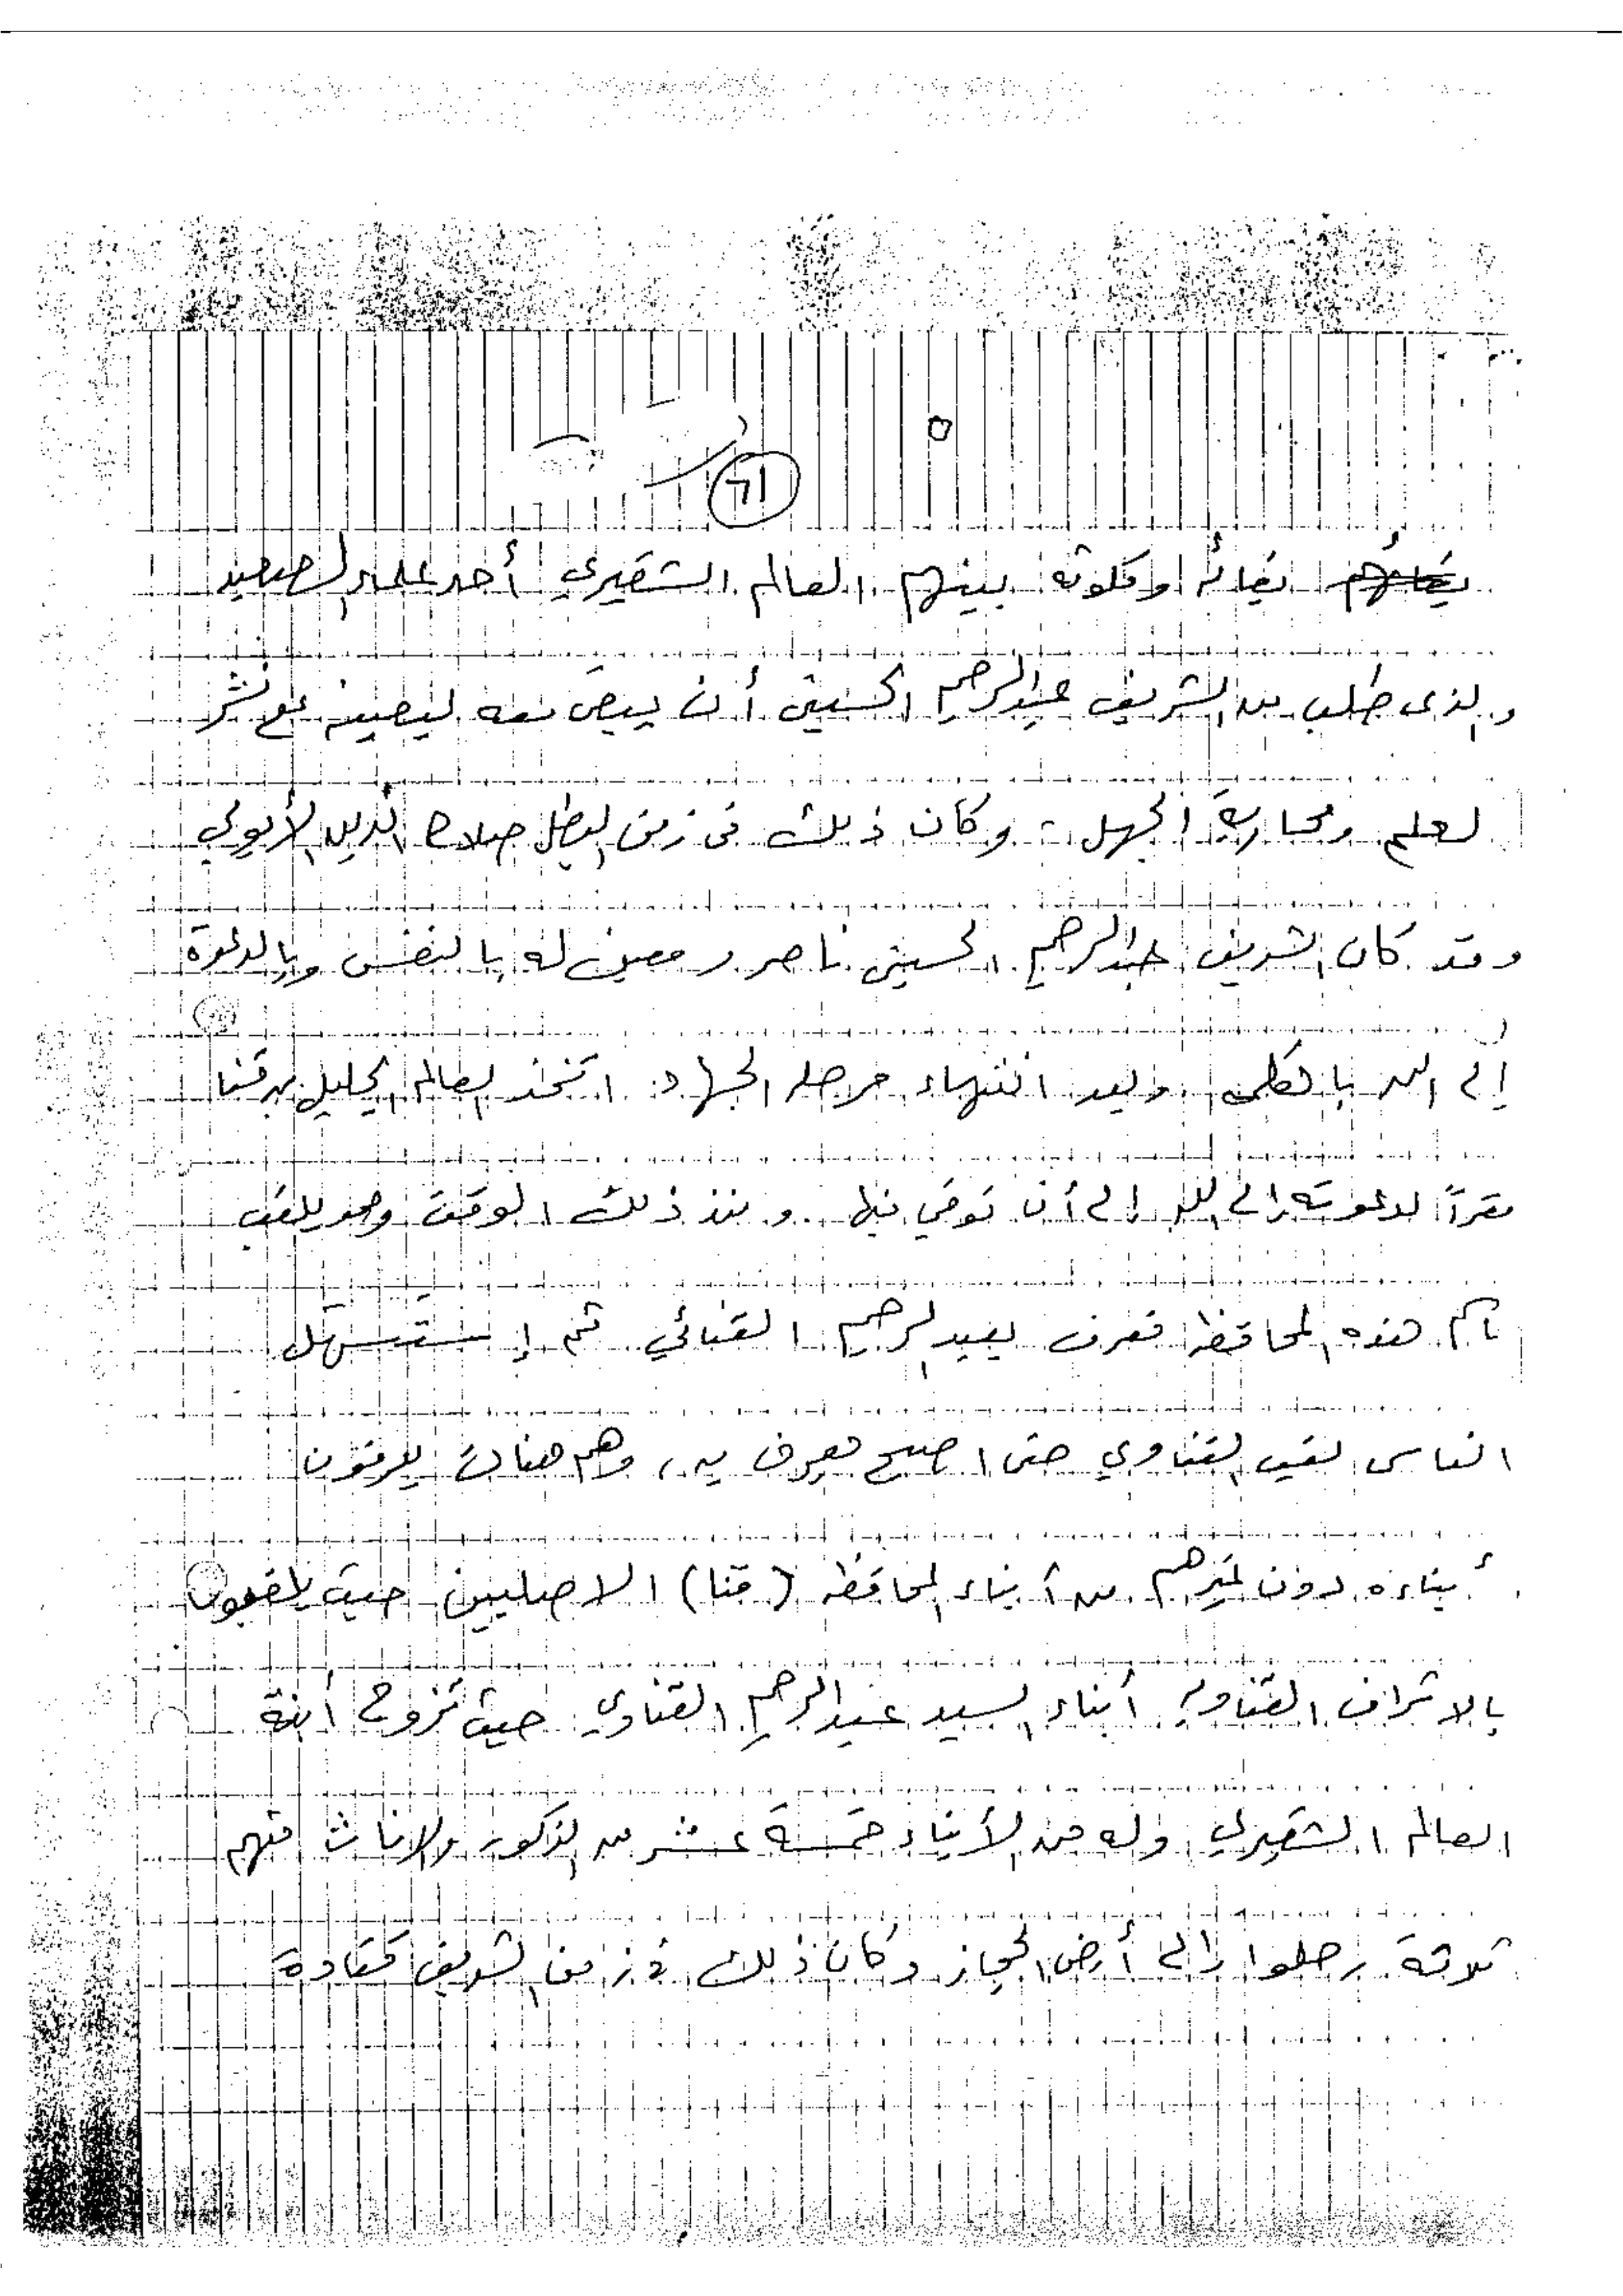 ١٦
لقائهم لقائه او كلوته بينهم العالم القشيري أحد علماء الصعيد
والذى طلب من الشريف عبدالرحيم الحسيني أن يبقى معه ليعينه على نشر
لعلم ومحاربة الجهل . وكان ذلك فى زمن البطل صلاح الدين الأيوبي
وقد كان الشريف عبدالرحيم الحسيني ناصر ومعين له بالنفس وبالدعوة
إلى الله بالكلمه . وبعد انتهاء مرحلة الجهاد اتخذ العالم الجليل من قنا
مقراً لدعوته إلى الله إلى أن توفي فيها . ومنذ ذلك الوقت وهو يلقب
باسم هذه المحافظه فعرف بعبدالرحيم القنائي ثم إستسهل
الناس لقب القناوي حتى اصبح يعرف به ، وهم هناك يعرفون
أبناءه دون غيرهم من أبناء المحافظه (قنا) الاصليين حيث يلقبون
بالاشراف القناويه أبناء السيد عبدالرحيم القناوي حيث تزوج أبنة
العالم القشيري وله من الأبناء خمسة عشر من الذكور والاناث منهم
ثلاثة رحلوا إلى أرض الحجاز وكان ذلك في زمن الشريف قتادة